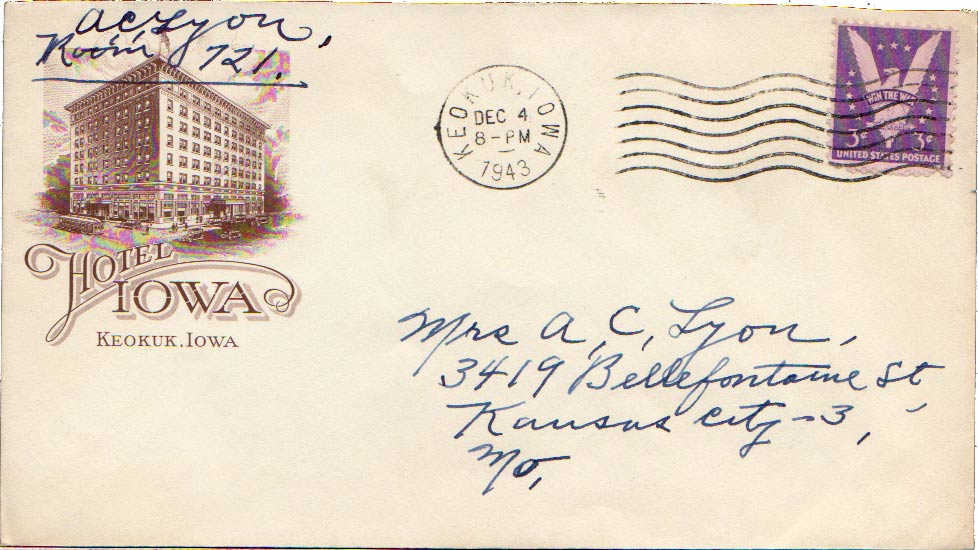 A C Lyon,
Room 721.
HOTEL
IOWA
KEOKUK, IOWA
KEOKUK, IOWA
DEC 4
8-PM
1943
WIN THE WAR
3¢ 3¢
UNITED STATES POSTAGE
Mrs A, C, Lyon,
3419 Bellefontaine St,
Kansas City-3,
Mo,